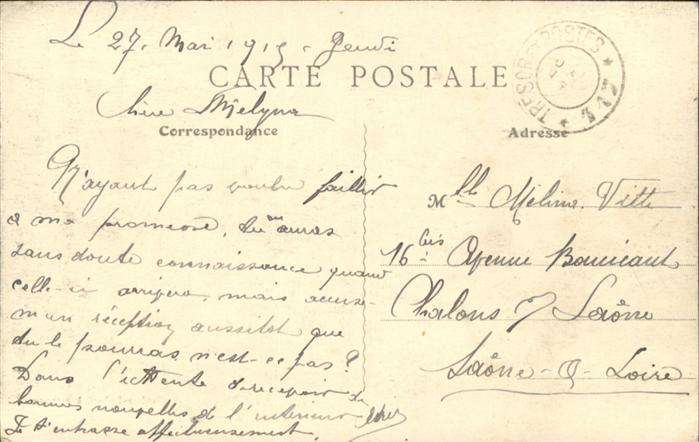 Le 27 Mai 1915 - Jeudi
CARTE POSTALE
TRESOR ET POSTES
Chère Mélyna
Correspondance
Adresse
N'ayant pas voulu faillir
a ma promesse, tu en auras
sans doute connaissance quand
celle-ci arrivera, mais accuse-
m'en réception aussitôt que
tu le pourras n'est-ce pas?
Dans l'attente de recevoir de
bonnes nouvelles de l'interieur
Je t'embrasse affectueusement.
Mlle Méline Vitte
16 bis Avenue Boucicaut
Chalons s/ Saône
Saône-&-Loire